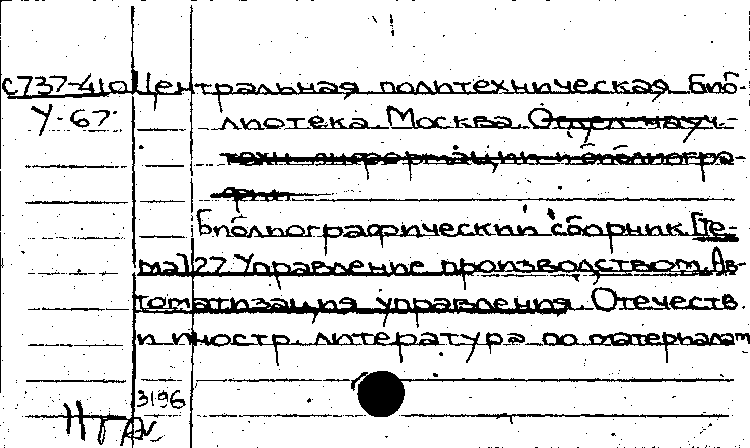 с737-410 Центральная политехническая биб-
У-67 лиотека. Москва. Отдел науч.-
техн. информации и библиогра-
фии
Библиографический сборник. [Те-
ма] 27. Управление производством. Ав-
томатизация управления. Отечеств.
и иностр. литература по материалам
3196